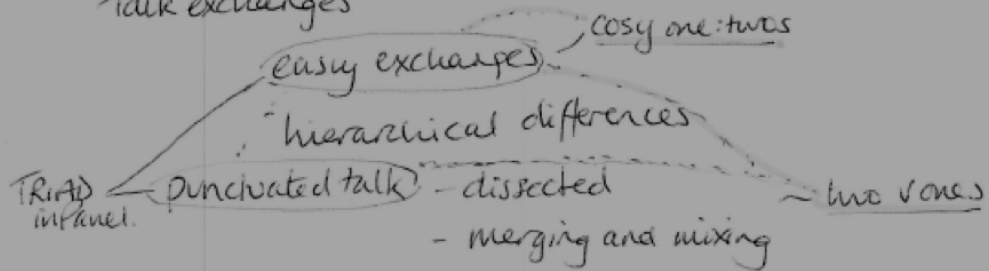 Talk exchanges
cosy one:twos
easy exchanges
hierarchical differences
TRIAD
in Panel.
punctuated talk - dissected
~ two v ones
- merging and mixing